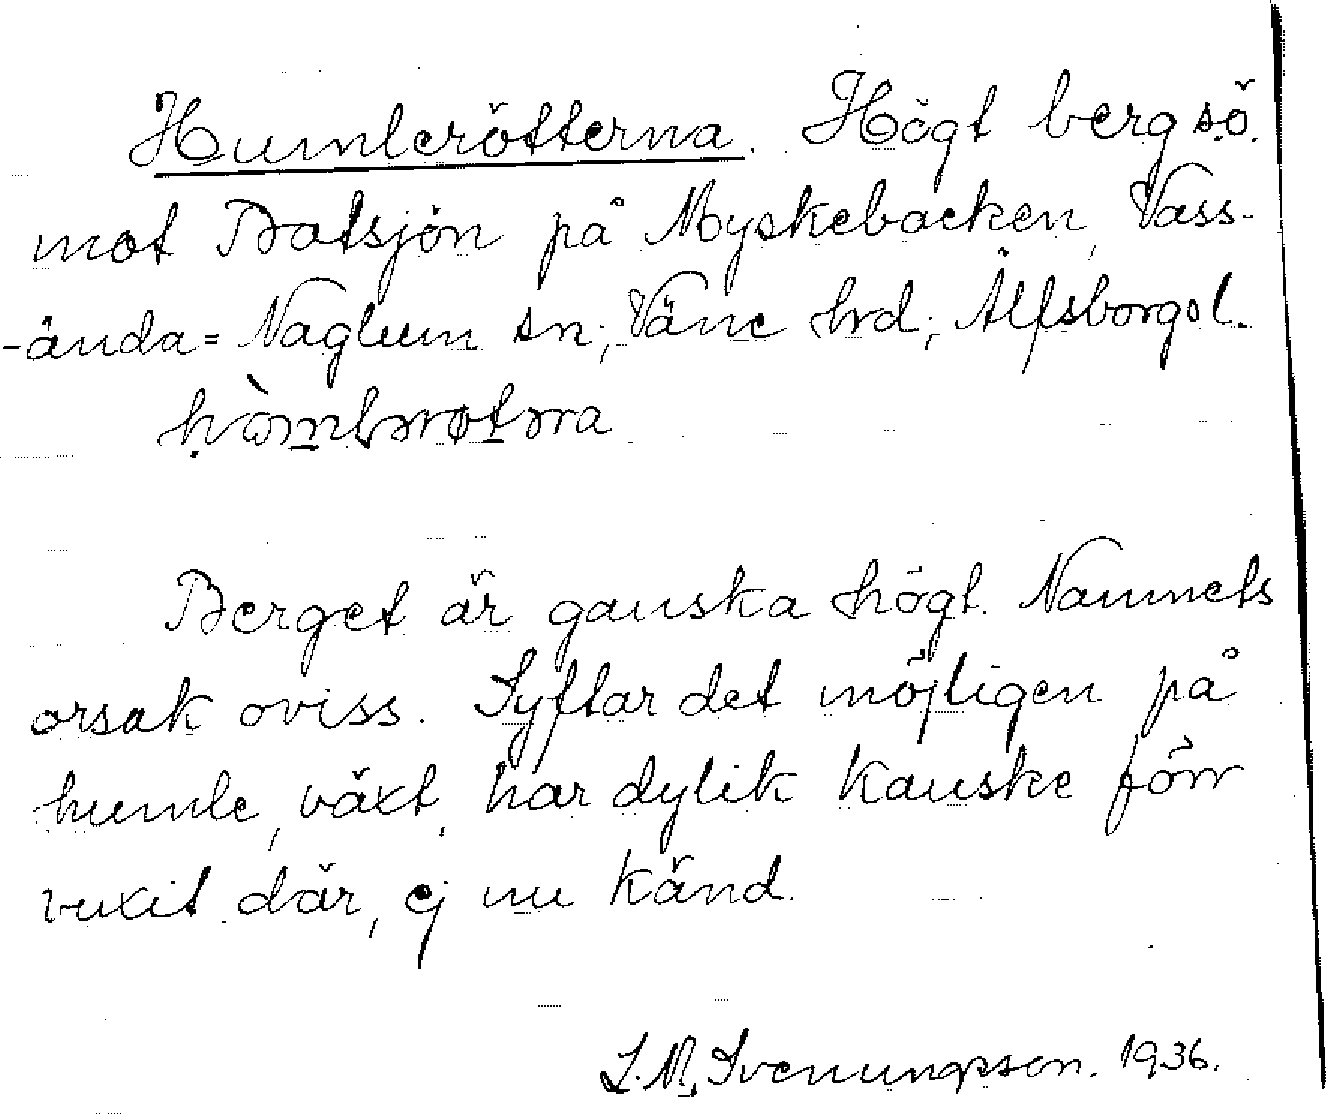 Humlerötterna. Högt berg sö.
mot Batsjön på Myskebacken, Vass-
-ända= Naglum sn; Väne hrd; Älfsborgs l.
Berget är ganska högt. Namnets
orsak oviss. Syftar det möjligen på
humle, växt, har dylik kanske förr
vuxit där, ej nu känd.
S. M. Svenungsson. 1936.